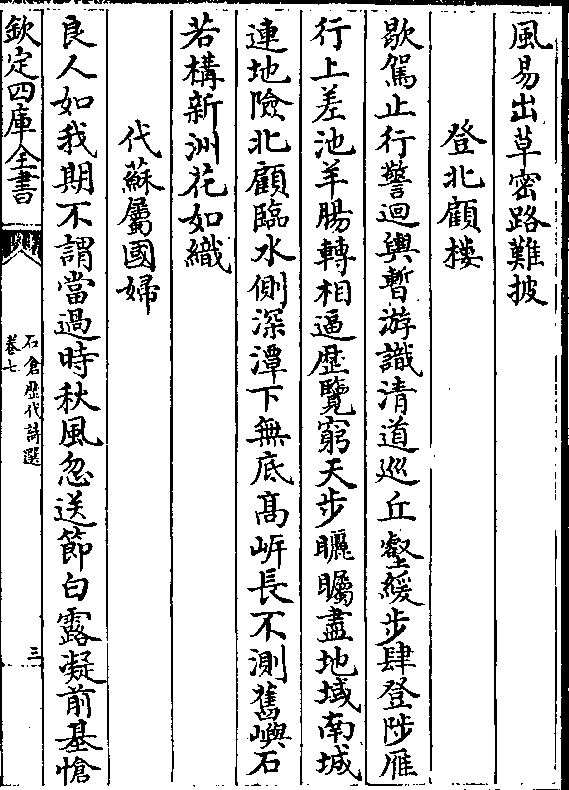 風易出草密路難披
登北顧樓
歇駕止行警迴輿暫游識清道巡丘壑緩步肆登陟雁
行上差池羊腸轉相逼歴覽窮天步矖矚盡地域南城
連地險北顧臨水側深潭下無底髙岍長不測舊嶼石
若構新洲花如織
代蘇屬國婦
良人如我期不謂當過時秋風忽送節白露凝前基愴
欽定四庫全書
石倉歴代詩選
卷七
三